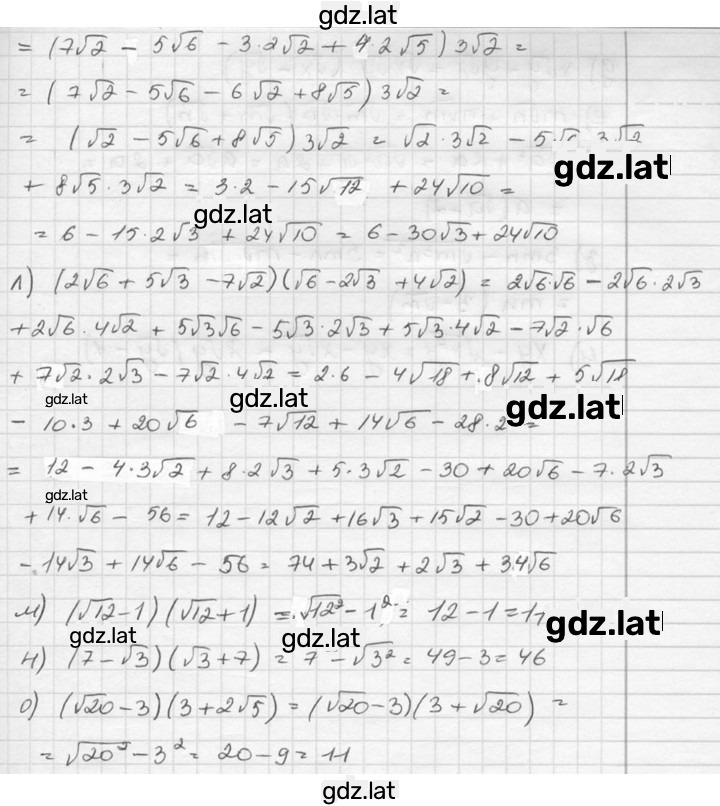 gdz.lat
= (7√2 - 5√6 - 3·2√2 + 4·2√5) 3√2 =
= (7√2 - 5√6 - 6√2 + 8√5) 3√2 =
= (√2 - 5√6 + 8√5) 3√2 = √2·3√2 - 5
gdz.lat
+ 8√5·3√2 = 3·2 - 15√12 + 24√10 =
gdz.lat
= 6 - 15·2√3 + 24√10 = 6 - 30√3 + 24√10
л) (2√6 + 5√3 - 7√2)(√6 - 2√3 + 4√2) = 2√6·√6 - 2√6·2√3
+ 2√6·4√2 + 5√3√6 - 5√3·2√3 + 5√3·4√2 - 7√2·√6
+ 7√2·2√3 - 7√2·4√2 = 2·6 - 4√18 + 8√12 + 5√18
gdz.lat gdz.lat gdz.lat
- 10·3 + 20√6 - 7√12 + 14√6 - 28·2 =
= 12 - 4·3√2 + 8·2√3 + 5·3√2 - 30 + 20√6 - 7·2√3
gdz.lat
+ 14·√6 - 56 = 12 - 12√2 + 16√3 + 15√2 - 30 + 20√6
- 14√3 + 14√6 - 56 = 74 + 3√2 + 2√3 + 34√6
м) (√12 - 1)(√12 + 1) = √12² - 1² = 12 - 1 = 11
gdz.lat gdz.lat gdz.lat
н) (7 - √3)(√3 + 7) = 7 - √3² = 49 - 3 = 46
о) (√20 - 3)(3 + 2√5) = (√20 - 3)(3 + √20) =
= √20² - 3² = 20 - 9 = 11
gdz.lat